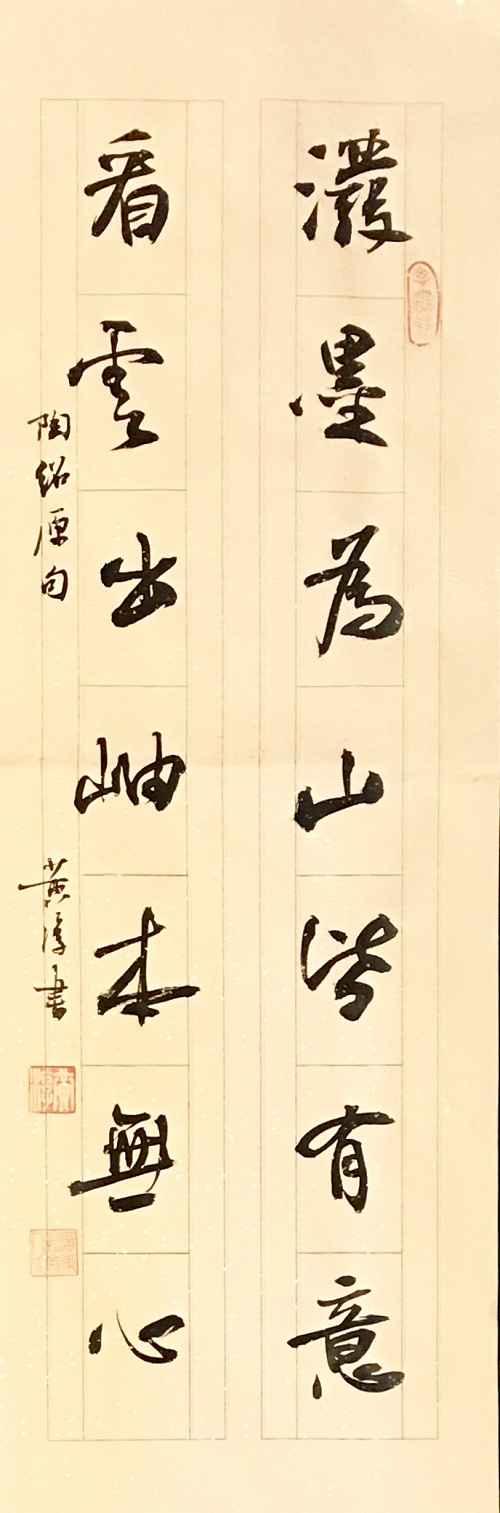 潑墨為山皆有意
看雲出岫本無心
陶紹原句
黃淳書